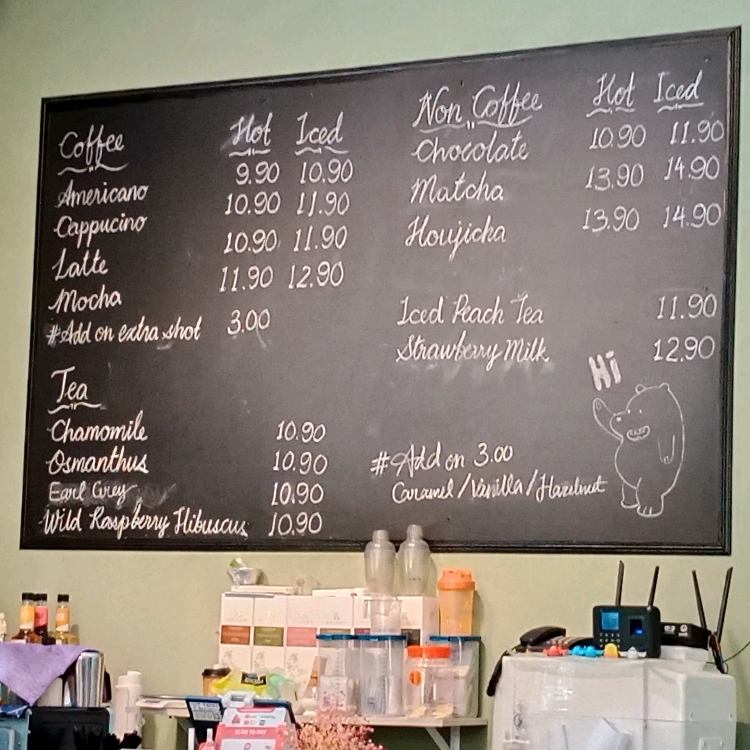 Coffee Hot Iced
Americano 9.90 10.90
Cappucino 10.90 11.90
Latte 10.90 11.90
Mocha 11.90 12.90
#Add on extra shot 3.00
Tea
Chamomile 10.90
Osmanthus 10.90
Earl Grey 10.90
Wild Raspberry Hibuscus 10.90
Non Coffee Hot Iced
Chocolate 10.90 11.90
Matcha 13.90 14.90
Houjicha 13.90 14.90
Iced Peach Tea 11.90
Strawberry Milk 12.90
Hi
#Add on 3.00
Caramel/Vanilla/Hazelnut
SCAN TO PAY